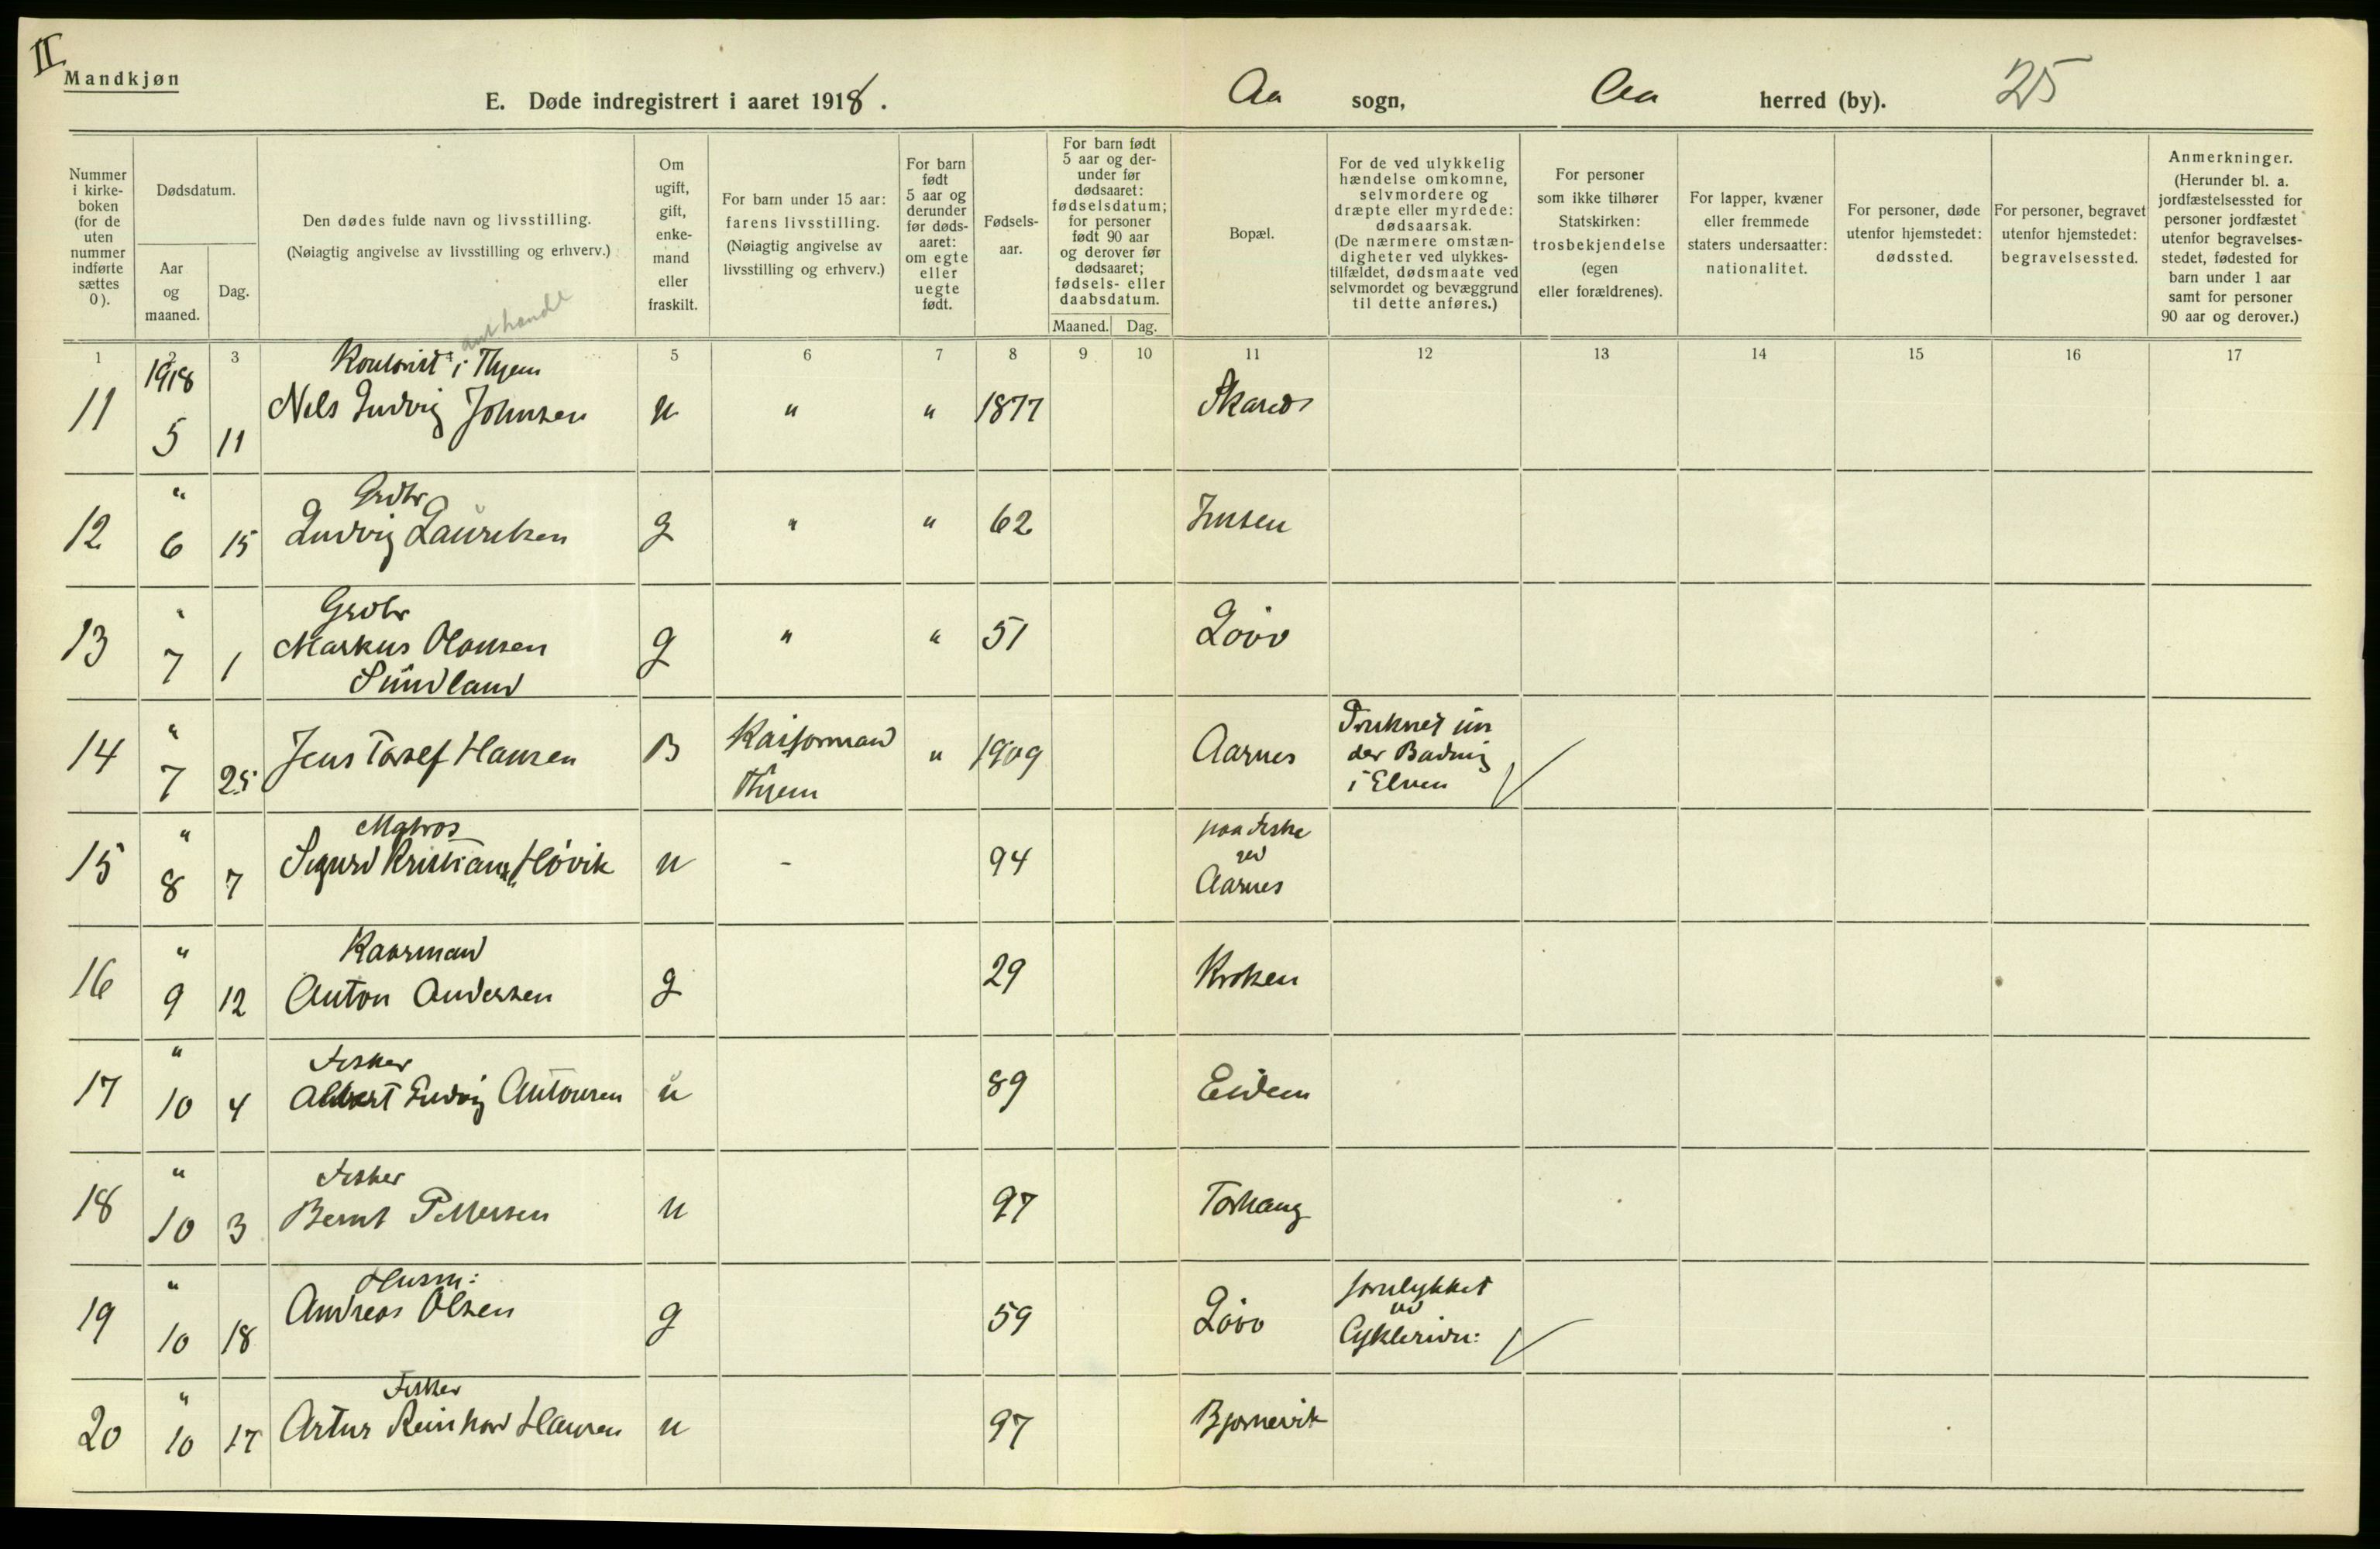 II
Mandkjøn
E. Døde indregistrert i aaret 1918.
Aa sogn, Aa herred (by). 25
Nummer i kirkeboken (for de uten nummer indførte sættes 0).
Dødsdatum.
Aar og maaned.
Dag.
Den dødes fulde navn og livsstilling.
(Nøiagtig angivelse av livsstilling og erhverv.)
Om ugift, gift, enkemand eller fraskilt.
For barn under 15 aar: farens livsstilling. (Nøiagtig angivelse av livsstilling og erhverv.)
For barn født 5 aar og derunder før dødsaaret: om egte eller uegte født.
Fødselsaar.
For barn født 5 aar og derunder før dødsaaret: fødselsdatum; for personer født 90 aar og derover før dødsaaret; fødsels- eller daabsdatum.
Maaned. Dag.
Bopæl.
For de ved ulykkelig hændelse omkomne, selvmordere og dræpte eller myrdede: dødsaarsak. (De nærmere omstændigheter ved ulykkestilfældet, dødsmaate ved selvmordet og bevæggrund til dette anføres.)
For personer som ikke tilhører Statskirken: trosbekjendelse (egen eller forældrenes).
For lapper, kvæner eller fremmede staters undersaatter: nationalitet.
For personer, døde utenfor hjemstedet: dødssted.
For personer, begravet utenfor hjemstedet: begravelsessted.
Anmerkninger. (Herunder bl. a. jordfæstelsessted for personer jordfæstet utenfor begravelsesstedet, fødested for barn under 1 aar samt for personer 90 aar og derover.)
1 2 3 4 5 6 7 8 9 10 11 12 13 14 15 16 17
1918
Kontorist i Thjem
11 5 11 Nels Ludvig Johnsen u " " 1877
" Grdbr
12 6 15 Ludvig Lauritsen g " " 62
" Grdbr
13 7 1 Markus Olausen g " " 51 Løvø
Sundland
"
14 7 25 Jens Torlef Hansen B Kaiformand " 1909 Aarnes
Thjem
Druknet un
der Badning
i Elven
" Matros
15 8 7 Sigurd Kristians. Høvik u - 94
paa Fiske
ved
Aarnes
" Kaarmand
16 9 12 Anton Andersen g 29 Kroken
" Fisker
17 10 4 Albert Ludvig Antonsen u 89 Eidem
" Fisker
18 10 3 Bernt Pettersen u 97 Torhaug
" Husm:
19 10 18 Andreas Olsen g 59 Løvø
forulykket
ved
" Fisker
20 10 17 Artur Reinhard Hansen u 97 Bjørnevik